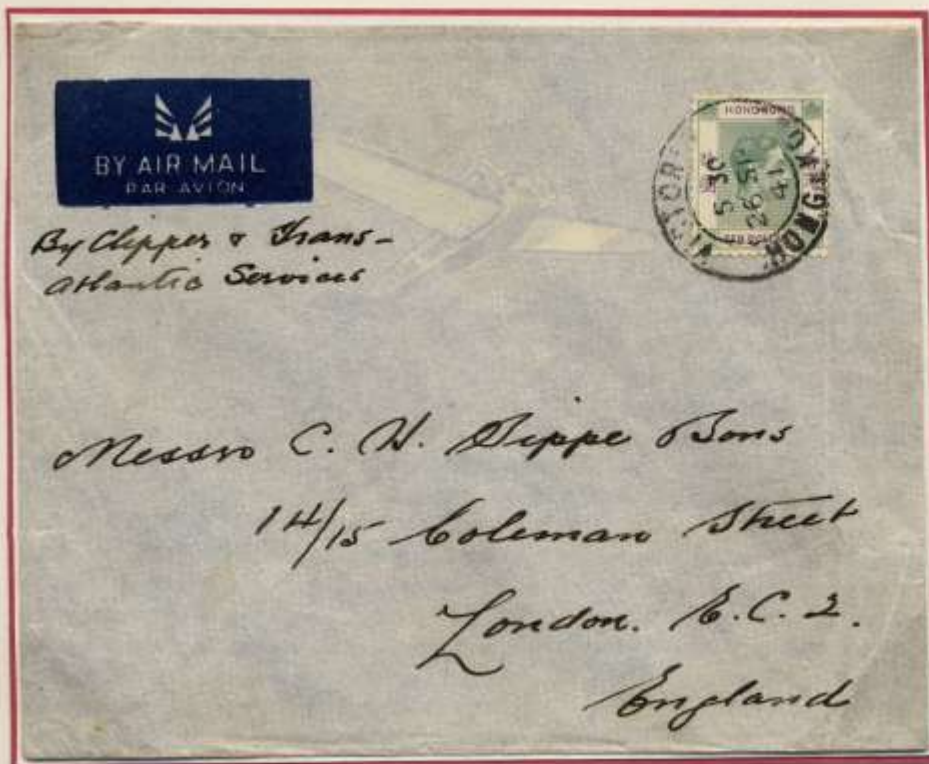 BY AIR MAIL
PAR AVION
By Clipper & Trans-
atlantic Services
HONG KONG
VICTORIA
HONG KONG
5 30
26 SP
41
Messrs C. H. Bons
14/15 Coleman Street
London. E.C. 2.
England